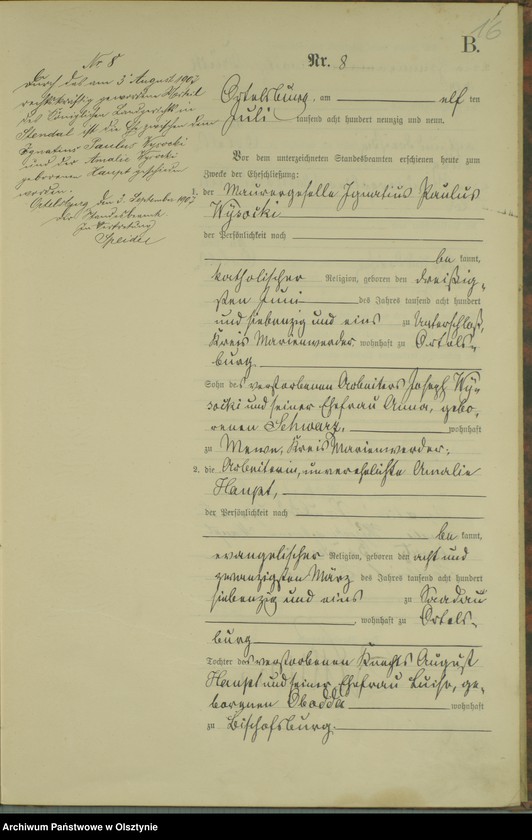 16
B.
Nr. 8
Nr 8
Durch das am 3 August 1903
rechtskräftig gewordene Urteil
des Königlichen Landgerichts in
Stendal ist die Ehe zwischen dem
Ignatius Paulus Wysocki
und der Amalie Wysocki
geborenen Haupt geschieden
worden.
Ortelsburg, den 3. September 1903
Der Standesbeamte
In Vertretung
Ortelsburg, am elf ten
Juli tausend acht hundert neunzig und neun.
Vor dem unterzeichneten Standesbeamten erschienen heute zum
Zwecke der Eheschließung:
1. der Maurergeselle Ignatius Paulus
Wysocki
der Persönlichkeit nach
be kannt,
katholischer Religion, geboren den dreißig-
sten Juni des Jahres tausend acht hundert
und siebenzig und eins zu Unterschloß,
Kreis Marienwerder wohnhaft zu Ortels-
burg.
Sohn des verstorbenen Arbeiters Joseph Wy-
socki und seiner Ehefrau Anna, gebo-
renen Schwarz, wohnhaft
zu Mewe, Kreis Marienwerder;
2. die Arbeiterin, unverehelichte Amalie
Haupt,
der Persönlichkeit nach
be kannt,
evangelischer Religion, geboren den acht und
zwanzigsten März des Jahres tausend acht hundert
siebenzig und eins zu Saadau
, wohnhaft zu Ortels-
burg
Tochter des verstorbenen Knechts August
Haupt und seiner Ehefrau Luise, ge-
borenen Obodda wohnhaft
zu Bischofsburg.
Archiwum Państwowe w Olsztynie